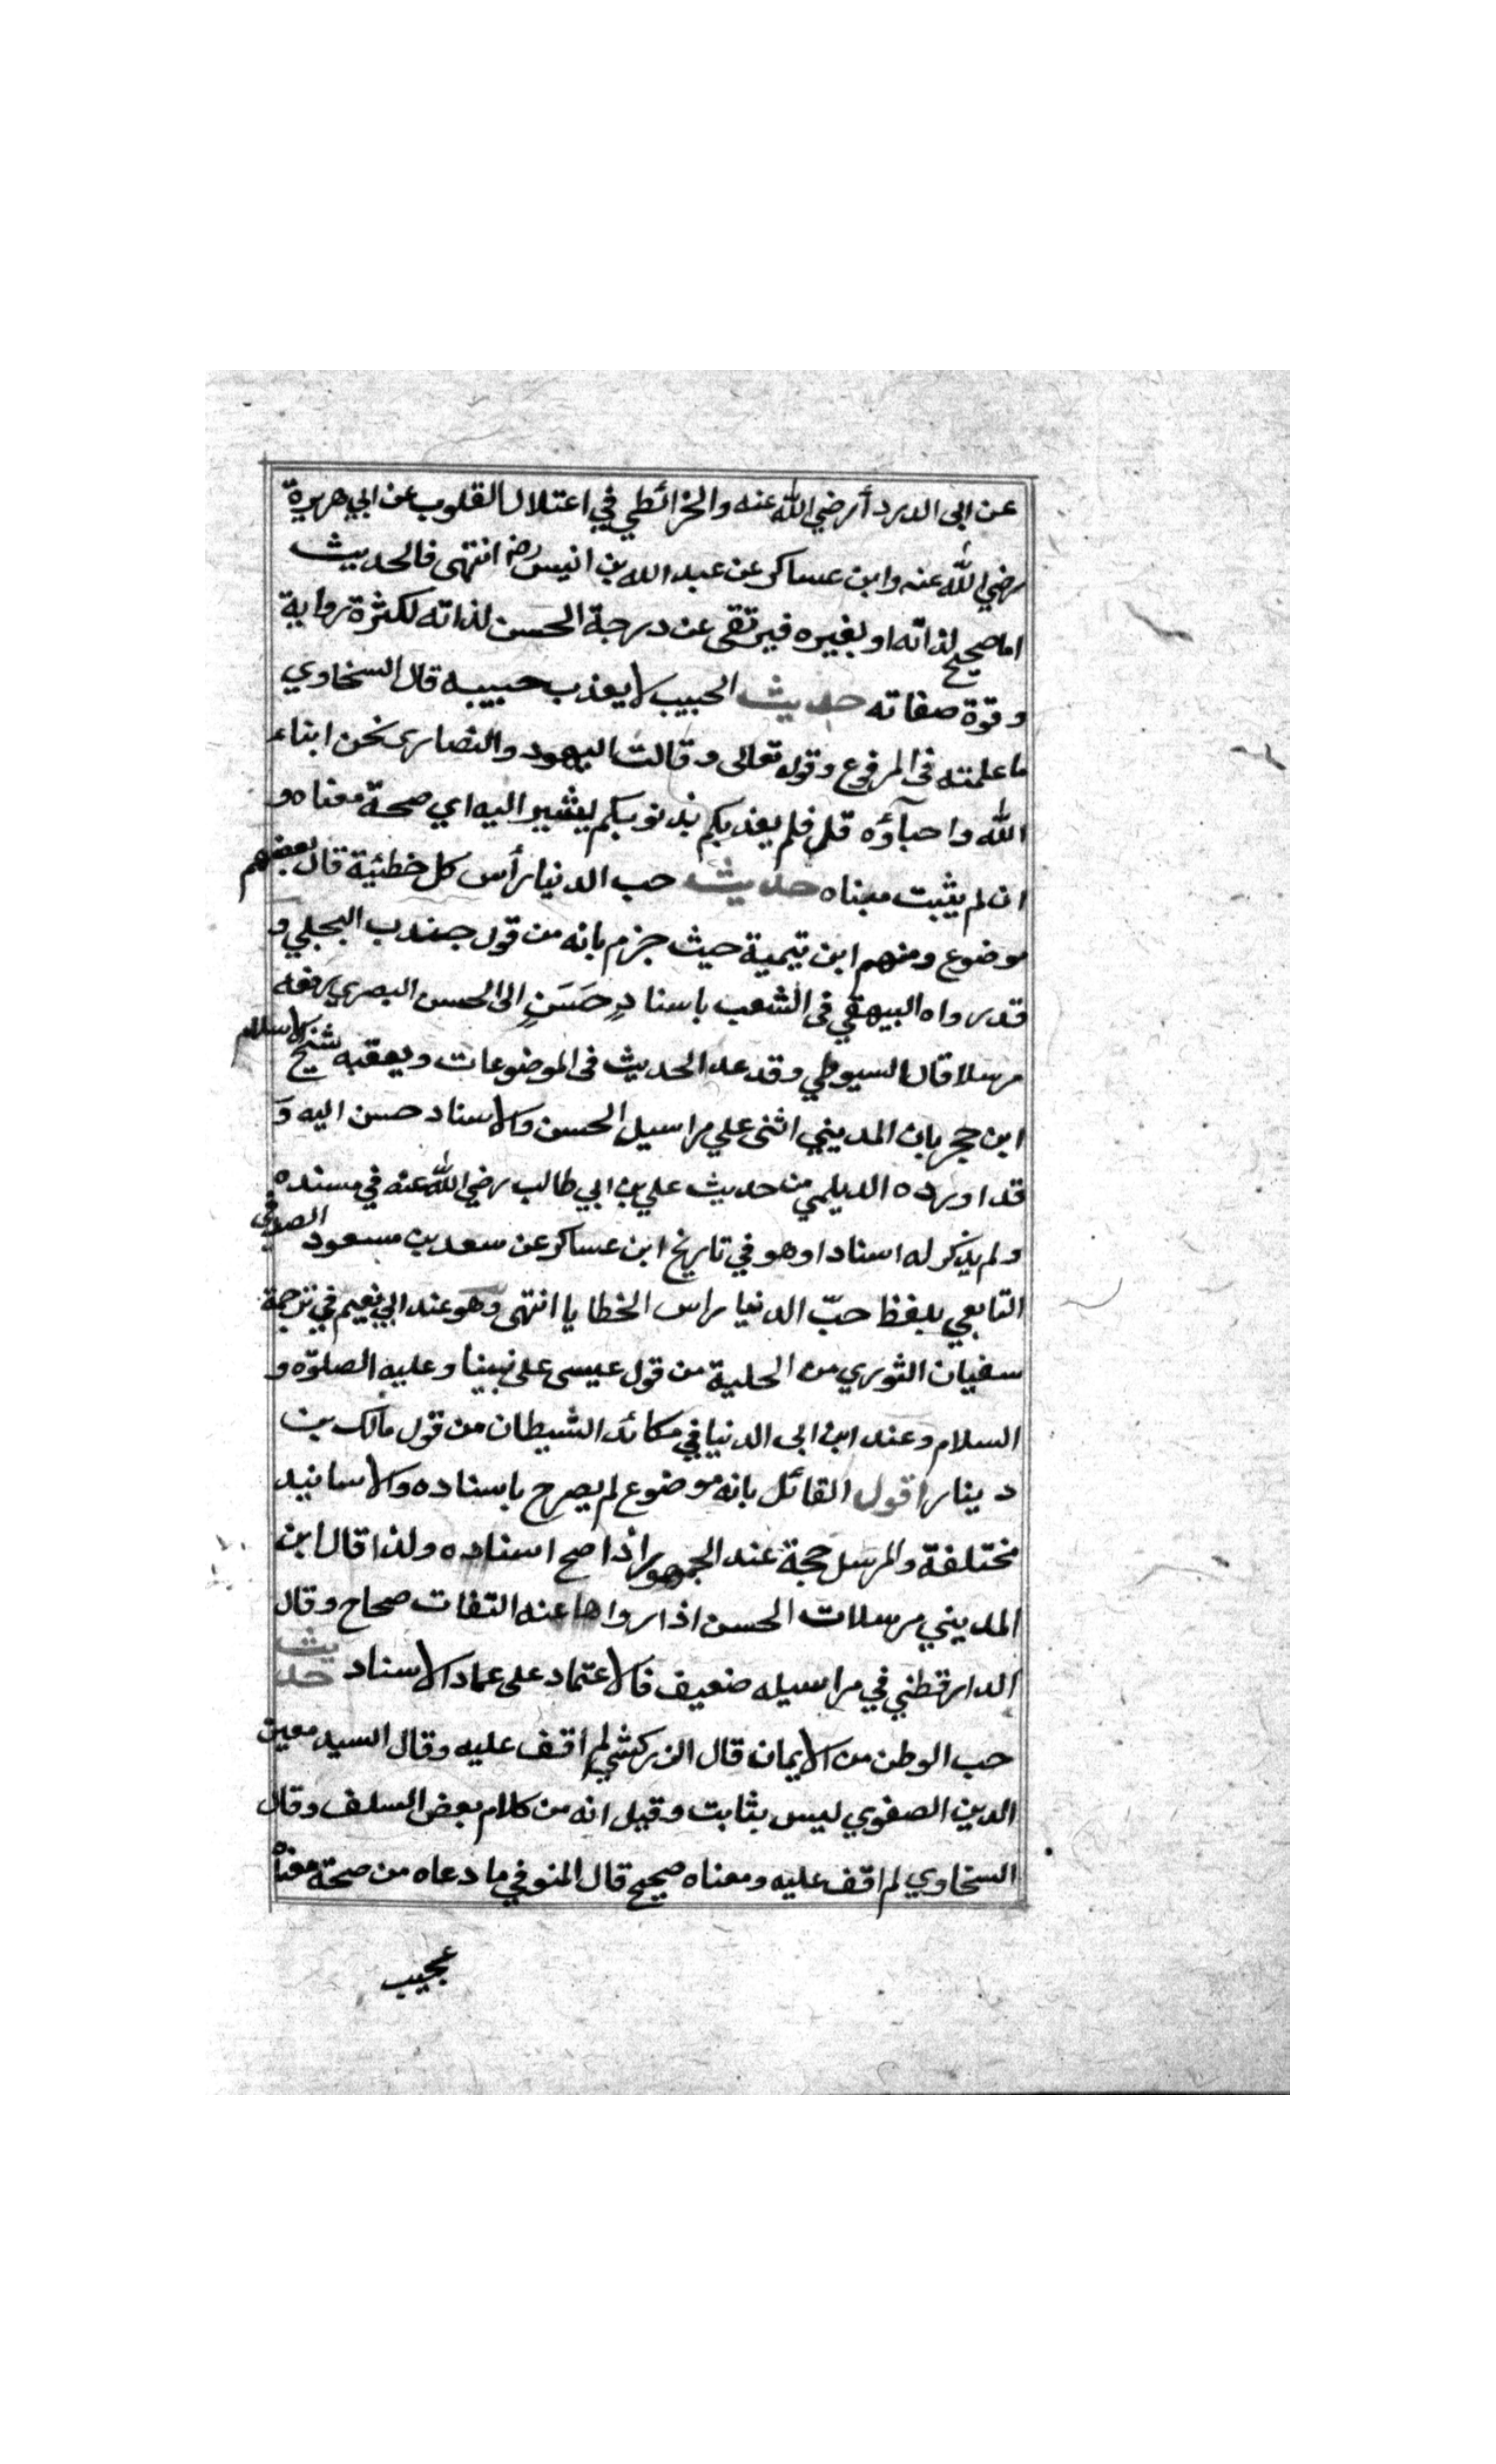 عن ابى الدرداء رضي الله عنه والخرائطي في اعتلال القلوب عن ابي هريرة
رضي الله عنه وابن عساكر عن عبد الله بن انيس رضه انتهى فالحديث
اما صحيح لذاته او لغيره فيرتقى عن درجة الحسن لذاته لكثرة رواية
وقوة صفاته حديث الحبيب لا يعذب حبيبه قال السخاوي
ما علمته فى المرفوع وقوله تعالى وقالت اليهود والنصارى نحن ابناء
الله واحبآؤه قل فلم يعذبكم بذنوبكم يشير اليه اي صحة معناه و
ان لم يثبت مبناه حديث حب الدنيا رأس كل خطئية قال بعضهم
موضوع ومنهم ابن تيمية حيث جزم بانه من قول جندب البجلي و
قد رواه البيهقي فى الشعب باسنادٍ حَسَنٍ الى الحسن البصري رفعه
مرسلا قال السيوطي وقد عد الحديث فى الموضوعات ويعقبه شيخ الاسلام
ابن حجر بان المديني اثنى علي مراسيل الحسن والاسناد حسن اليه و
قد اورده الديلمي من حديث علي بن ابي طالب رضي الله عنه في مسنده
ولم يذكر له اسنادا وهو في تاريخ ابن عساكر عن سعد بن مسعود الصدفي
التابعي بلفظ حبّ الدنيا راس الخطايا انتهى وهو عند ابي نعيم في ترجمة
سفيان الثوري من الحلية من قول عيسى على نبينا وعليه الصلوة و
السلام وعند ابن ابى الدنيا في مكائد الشيطان من قول مالك بن
دينار اقول القائل بانه موضوع لم يصرح باسناده والاسانيد
مختلفة والمرسل حجة عند الجمهور اذا صح اسناده ولذا قال ابن
المديني مرسلات الحسن اذا رواها عنه الثقات صحاح وقال
الدارقطني في مراسيله ضعيف فالاعتماد على عماد الاسناد حديث
حب الوطن من الايمان قال الزركشي لم اقف عليه وقال السيد معين
الدين الصفوي ليس بثابت وقيل انه من كلام بعض السلف وقال
السخاوي لم اقف عليه ومعناه صحيح قال المنوفي ما دعاه من صحة معناه
عجيب